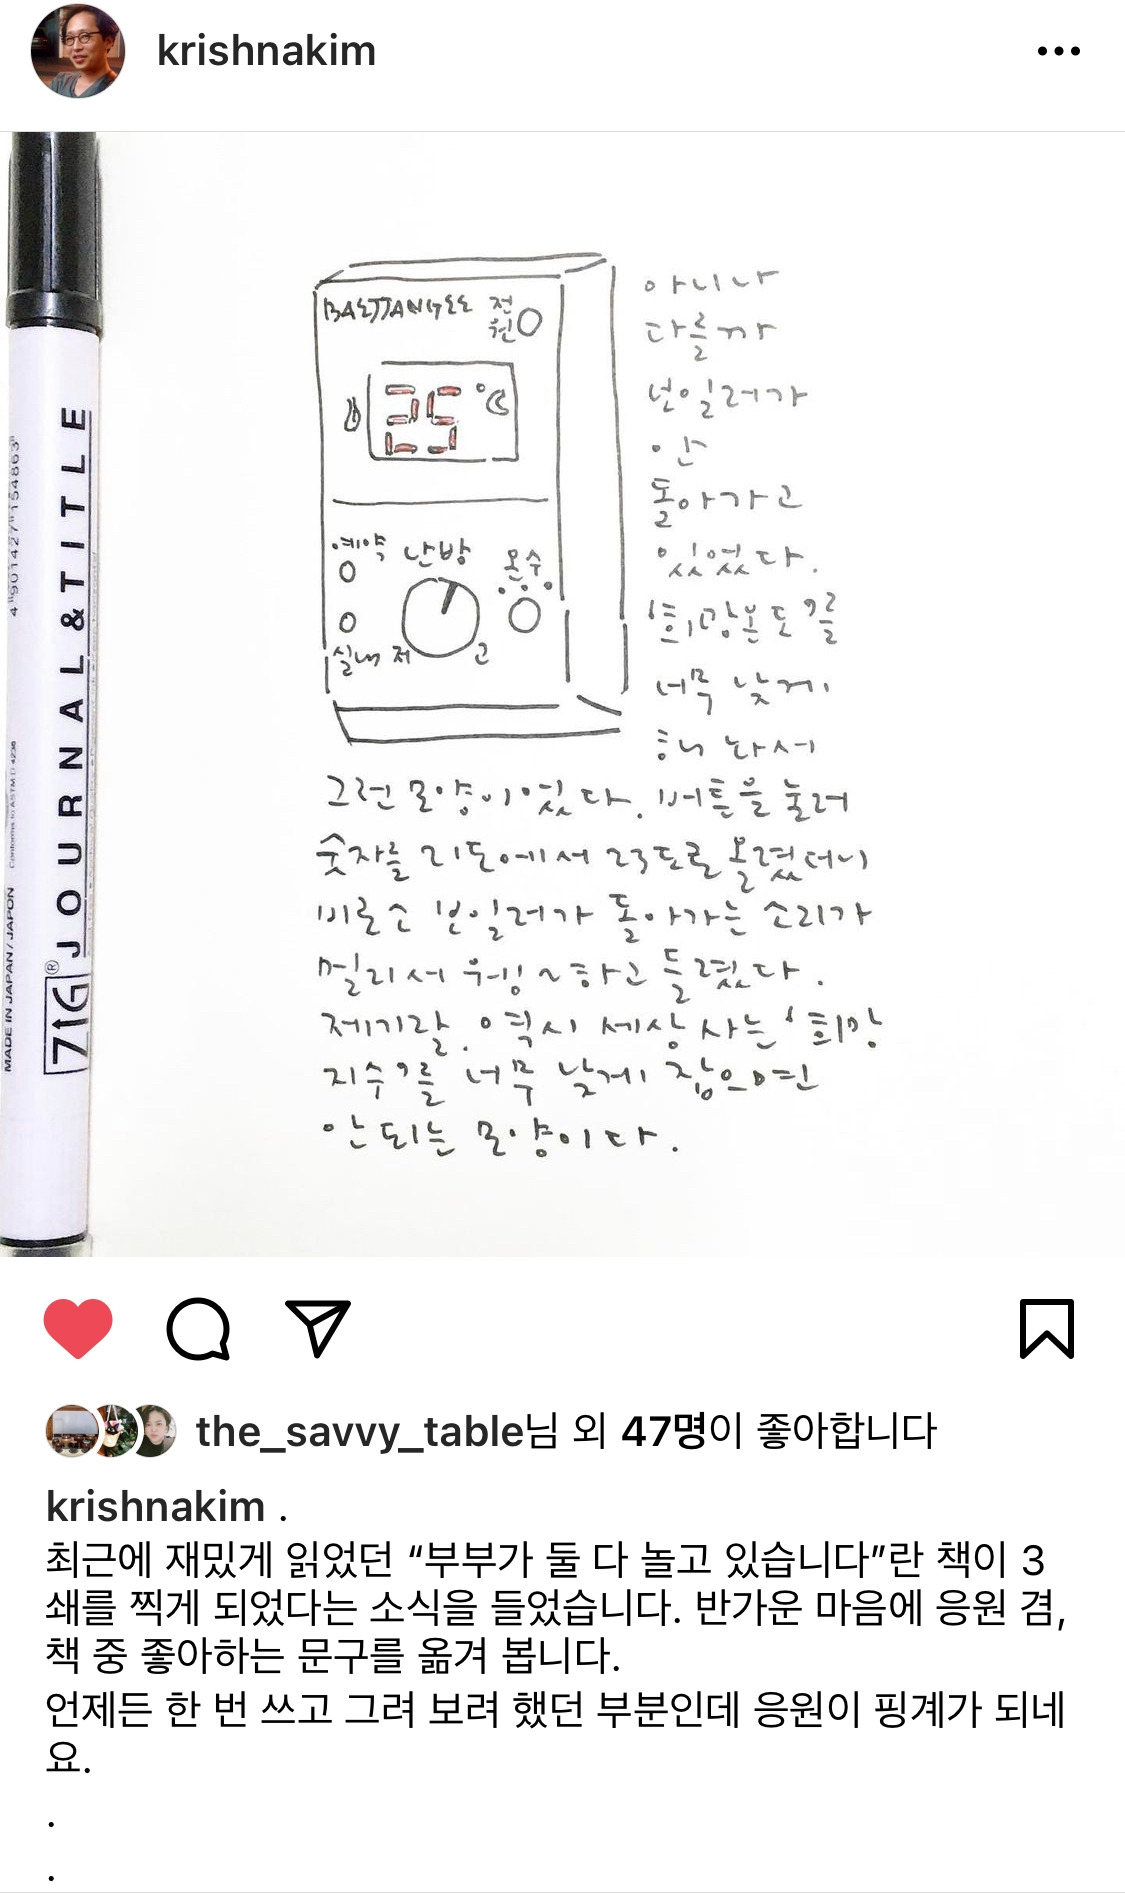 krishnakim
BAETTANGEE 전원
25 °C
예약 난방 온수
실내 저 고
아니나
다를까
보일러가
안
돌아가고
있었다.
'희망온도'를
너무 낮게
해 놔서
그런 모양이었다. 버튼을 눌러
숫자를 21도에서 23도로 올렸더니
비로소 보일러가 돌아가는 소리가
멀리서 우웅~하고 들렸다.
제기랄. 역시 세상 사는 '희망
지수'를 너무 낮게 잡으면
안 되는 모양이다.
4 901427 154863
Conforms to ASTM D 4236
MADE IN JAPAN / JAPON
ZIG® JOURNAL & TITLE
the_savvy_table님 외 47명이 좋아합니다
krishnakim .
최근에 재밌게 읽었던 “부부가 둘 다 놀고 있습니다”란 책이 3
쇄를 찍게 되었다는 소식을 들었습니다. 반가운 마음에 응원 겸,
책 중 좋아하는 문구를 옮겨 봅니다.
언제든 한 번 쓰고 그려 보려 했던 부분인데 응원이 핑계가 되네
요.
.
.